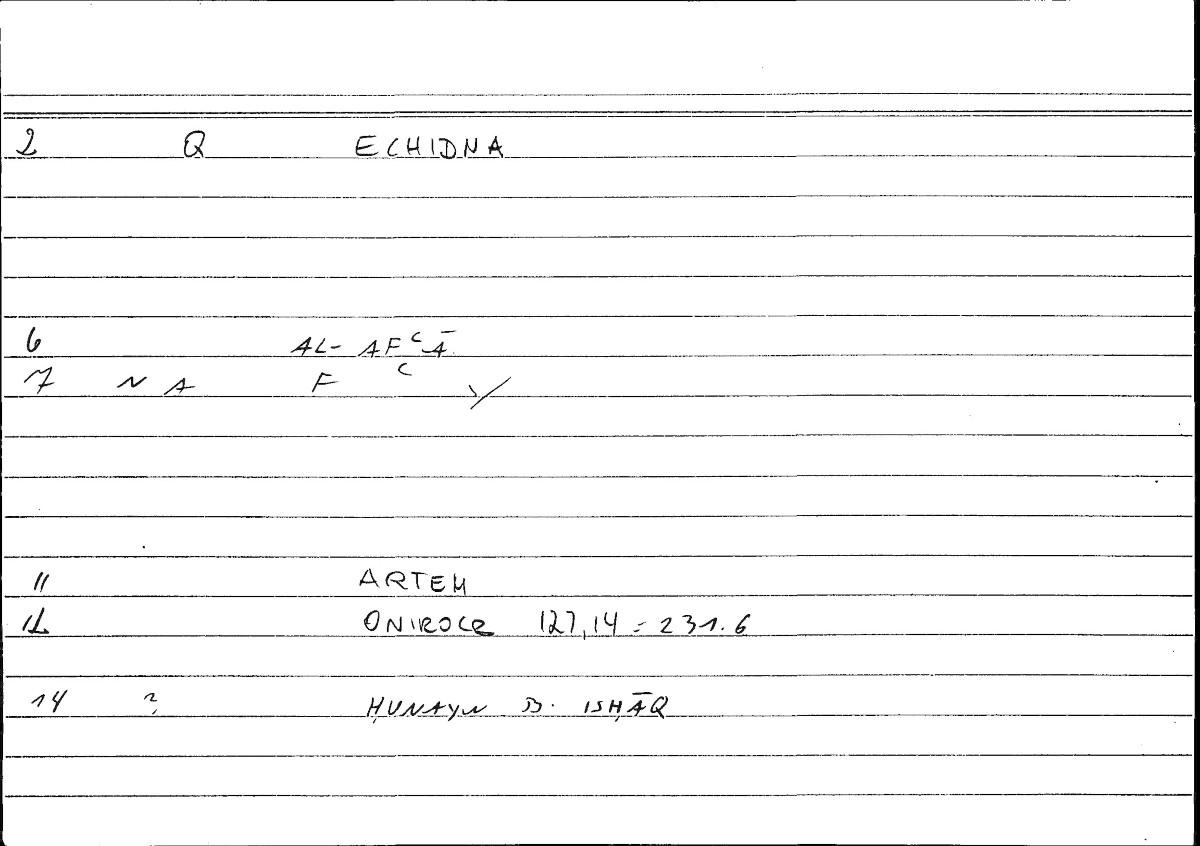 2 Q ECHIDNA
6 AL- AFʿĀ
7 N A F ʿ Y
11 ARTEM
12 ONIROCR 127,14 = 231.6
14 ? ḤUNAYN B. ISḤĀQ